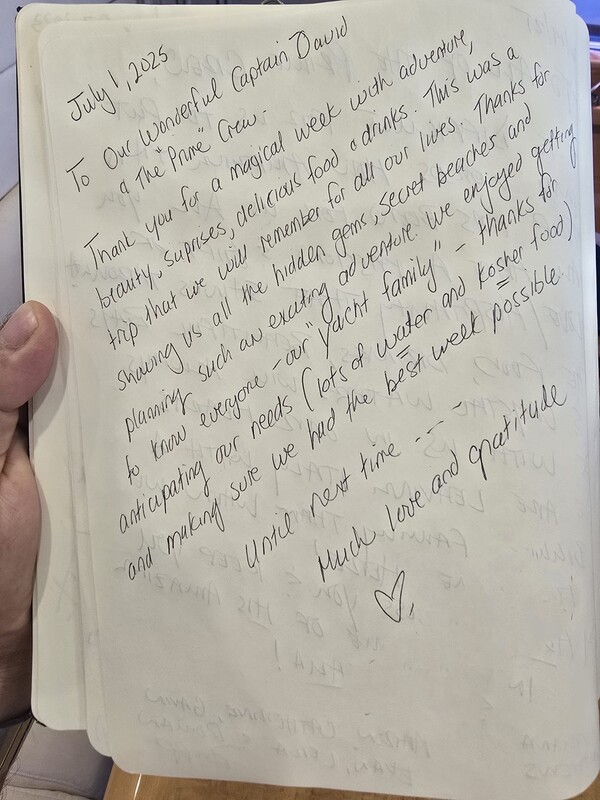 July 1, 2025
To Our Wonderful Captain David
& The "Prime" Crew.
Thank you for a magical week with adventure,
beauty, suprises, delicious food & drinks. This was a
trip that we will remember for all our lives. Thanks for
showing us all the hidden gems, secret beaches and
planning such an exciting adventure. We enjoyed getting
to know everyone - our "yacht family" - thanks for
anticipating our needs (lots of water and kosher food)
and making sure we had the best week possible
Until next time ----
Much love and gratitude
♡.